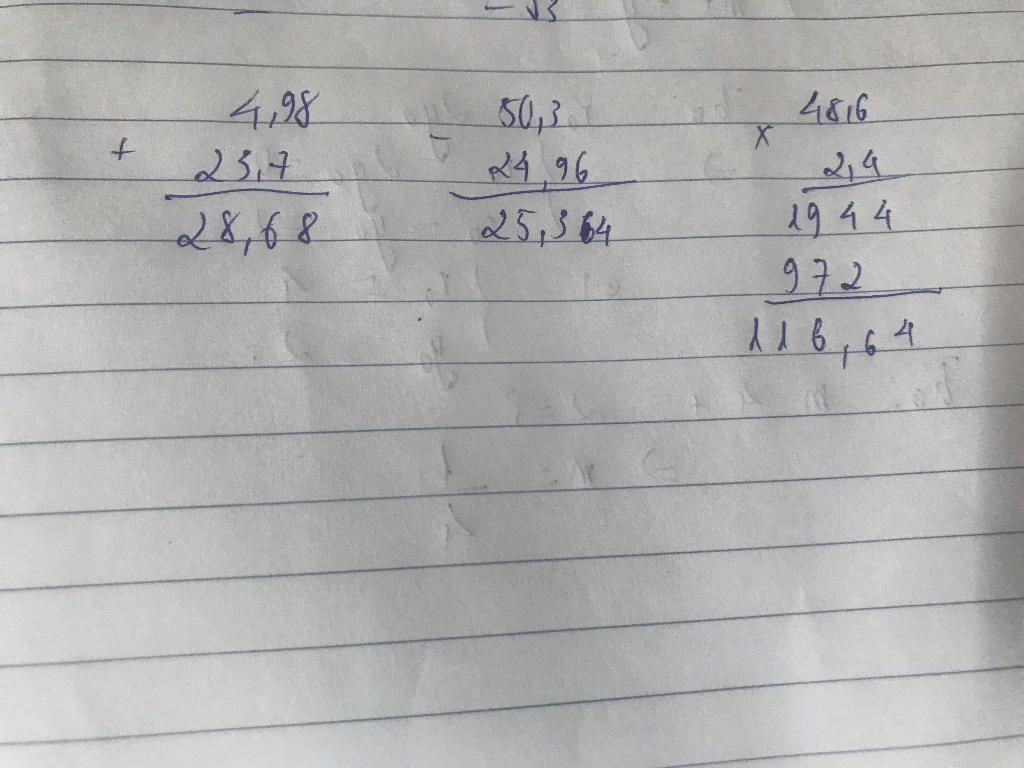 - √3
4,98
+
23,7
28,68
50,3
-
24,96
25,364
48,6
x
2,4
1944
972
116,64